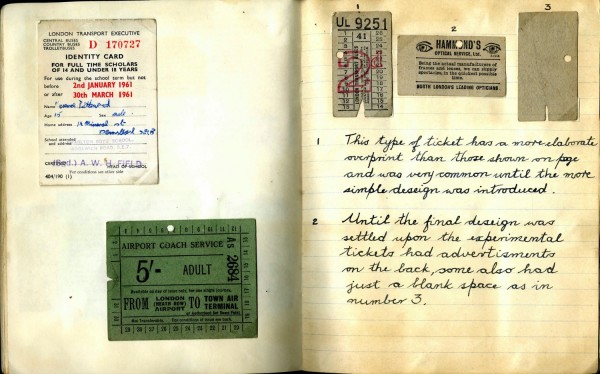 LONDON TRANSPORT EXECUTIVE
CENTRAL BUSES
COUNTRY BUSES
TROLLEYBUSES
D 170727
IDENTITY CARD
FOR FULL TIME SCHOLARS
OF 14 AND UNDER 18 YEARS
For use during the school term but not
before 2nd JANUARY 1961
or after 30th MARCH 1961
Name
Age 15 Sex male
Home address
School attended
and address
A. W. H. FIELD
HEAD OF SCHOOL
For conditions see other side
404/190 (1)
AIRPORT COACH SERVICE
5/- ADULT
As 2684
FROM LONDON (HEATH ROW) AIRPORT TO TOWN AIR TERMINAL
1
UL 9251
41
2
HAMMOND'S
OPTICAL SERVICE, Ltd.
Being the actual manufacturers of
frames and lenses, we can supply
spectacles in the quickest possible
time.
NORTH LONDON'S LEADING OPTICIANS
3
1 This type of ticket has a more elaborate
overprint than those shown on page
and was very common until the more
simple deseign was introduced.
2 Until the final deseign was
settled upon the experimental
tickets had advertisments
on the back, some also had
just a blank space as in
number 3.